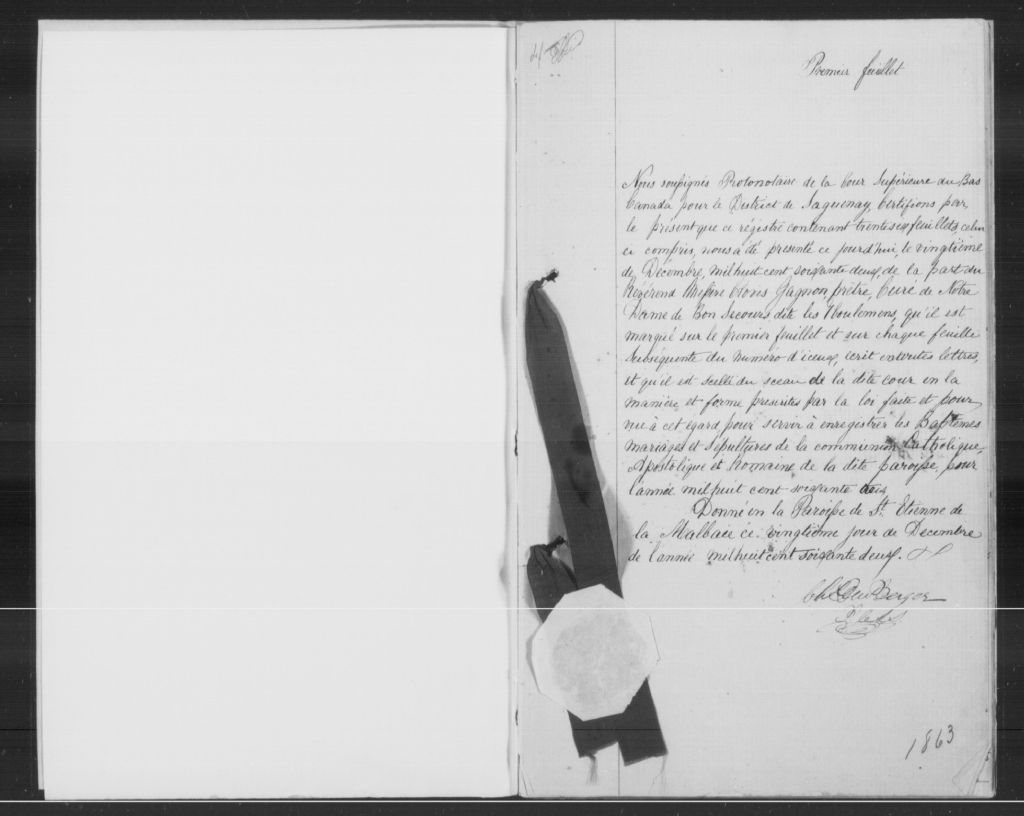 Premier feuillet
Nous soussignés Protonotaire de la Cour Supérieure du Bas
Canada pour le District de Saguenay, Certifions par
le présent que ce régistre contenant trente six feuillets, celui
ci compris, nous a été presenté ce jourd'hui, le vingtième
de Décembre, mil huit cent soixante deux, de la part du
Révérend Messire Clovis Gagnon, prêtre, Curé de Notre
Dame de Bon Secours dite les Eboulemens, qu'il est
marqué sur le premier feuillet et sur chaque feuille
Subséquente du numéro d'iceux, écrit en toutes lettres,
et qu'il est scellé du sceau de la dite cour en la
manière et forme prescrites par la loi faite et pour
vue à cet égard pour servir à enregistrer les Baptêmes
mariages et Sépultures de la communion Catholique,
Apostolique et Romaine de la dite paroisse, pour
l'année mil huit cent soixante trois
Donné en la Paroisse de St. Etienne de
la Malbaie ce vingtième jour de Decembre
de l'année mil huit cent soixante deux.
Chs Du Berger
1863